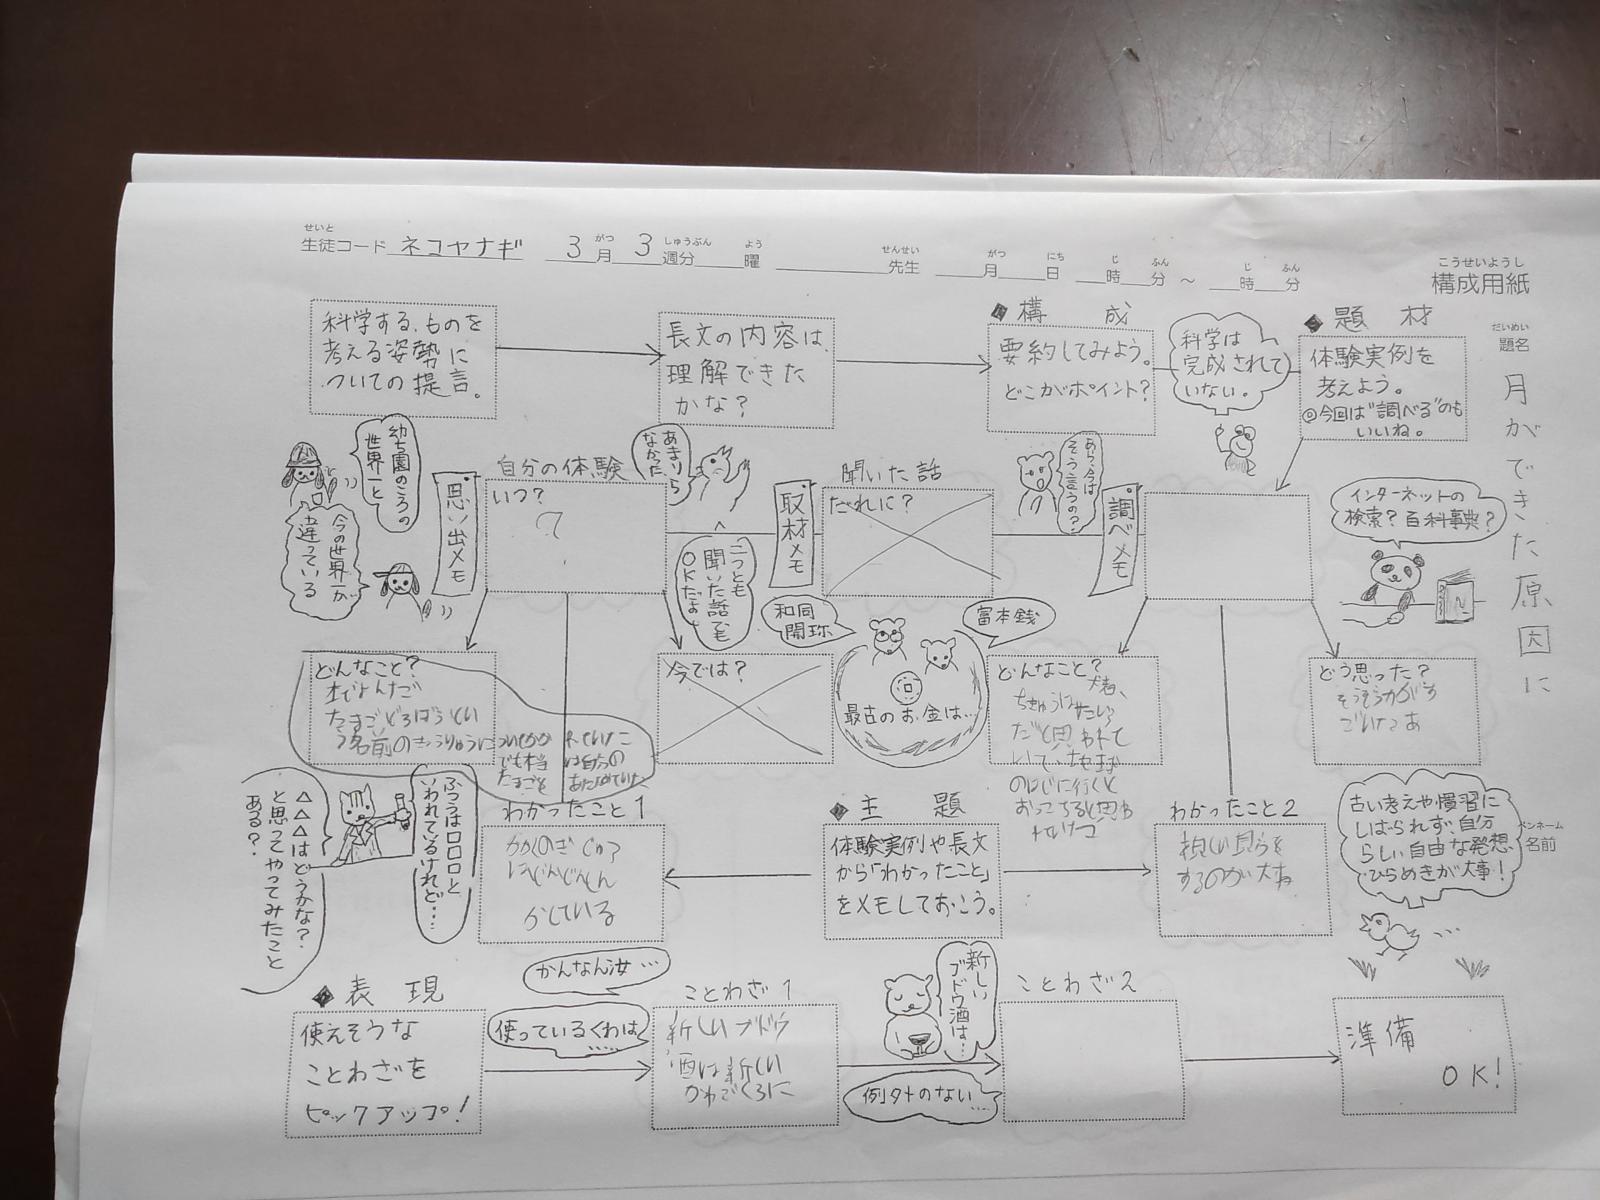 生徒コード ネコヤナギ 3月 3週分 曜 先生 月 日 時 分 ～ 時 分
構成用紙
題名
月ができた原因に
科学する、ものを
考える姿勢に
ついての提言。
長文の内容は、
理解できた
かな？
◆構成
要約してみよう。
どこがポイント？
科学は
完成されて
いない。
◆題材
体験実例を
考えよう。
◎今回は“調べる”のも
いいね。
幼ち園のころの
世界一と、
今の世界一が
違っている
思い出メモ
自分の体験
いつ？
？
あまり
なかった、ら
二つとも
聞いた話でも
OKだよ。
取材メモ
聞いた話
だれに？
あら、今は
そう言うの？
調べメモ
インターネットの
検索？百科事典？
どんなこと？
本でよんだ
たまごどろぼうとい
う名前のきょうりゅうに
でも本当
たまごを
は自分の
あたためていた
今では？
和同
開珎
富本銭
最古のお金は…
どんなこと？
ちきゅうは
だと思われて
いていた地球
のはじに行くと
おっこちると思わ
れていた
どう思った？
ふつうは口口口と
いわれているけれど…
△△△はどうかな？
と思ってやってみたこと
ある？
わかったこと1
かがくのぎじゅつ
◆主題
体験実例や長文
から「わかったこと」
をメモしておこう。
わかったこと2
するのが大事
古い考えや慣習に
しばられず、自分
らしい自由な発想、
ひらめきが大事！
ペンネーム
名前
◆表現
使えそうな
ことわざを
ピックアップ！
かんなん汝…
使っているくわは……
ことわざ1
新しいブドウ
酒は新しい
かわぶくろに
新しい
ブドウ酒は…
例外のない……
ことわざ2
準備
OK！